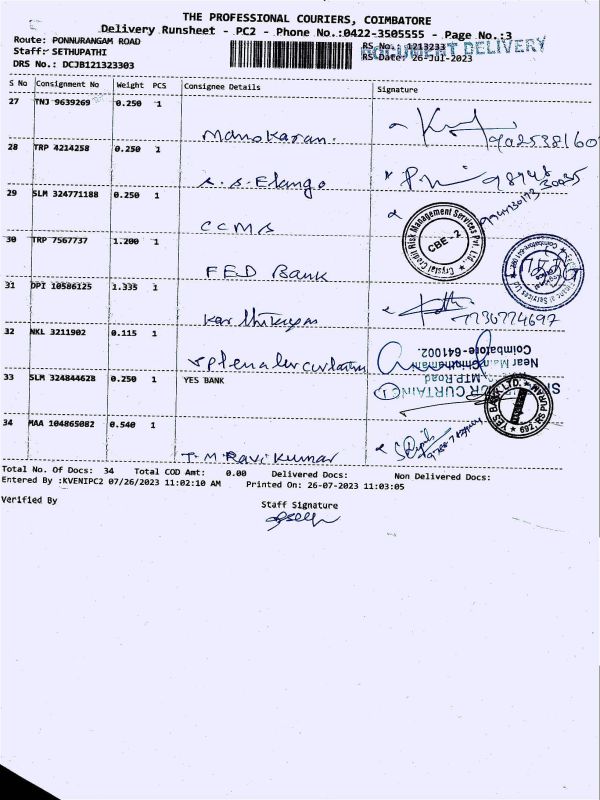 THE PROFESSIONAL COURIERS, COIMBATORE
Delivery Runsheet - PC2 - Phone No.:0422-3505555 - Page No.:3
Route: PONNURANGAM ROAD
RS No.: 1213233
DOCUMENT DELIVERY
Staff: SETHUPATHI
RS Date: 26-Jul-2023
DRS No.: DCJB121323303
S No Consignment No Weight PCS Consignee Details Signature
27 TNJ 9639269 0.250 1
Manokaran.
28 TRP 4214258 0.250 1
A. S. Elango
29 SLM 324771188 0.250 1
CCMS
Crystal Credit Risk Management Services Pvt. Ltd.
CBE - 2
30 TRP 7567737 1.200 1
FED Bank
31 DPI 10586125 1.335 1
Karthikayan
7730774697
32 NKL 3211902 0.115 1
Coimbatore-641002.
33 SLM 324844628 0.250 1 YES BANK
YES BANK LTD.
34 MAA 104865082 0.540 1
T. M Ravi Kumar
Total No. Of Docs: 34 Total COD Amt: 0.00 Delivered Docs: Non Delivered Docs:
Entered By :KVENIPC2 07/26/2023 11:02:10 AM Printed On: 26-07-2023 11:03:05
Verified By
Staff Signature